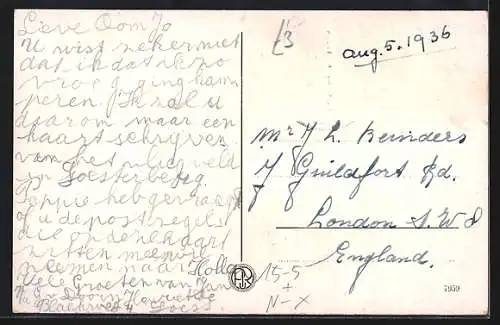 Lieve Oom Jo
U wist zeker niet
dat ik dat zoo
vroeg ging kam
peren. Ik zal u
daarom maar een
kaart schrijven
van het vliegveld
in Soesterberg.
Jeppie heb gevraagt
of u de postzegels
die op de kaart
zitten mee wil
neemen naar Holla
Vele Groeten van
Soest
£3
aug. 5. 1936
Mr J L. Beinders
7 Guildfort Rd.
London S.W 8
England.
15-5
+
N-X
7959